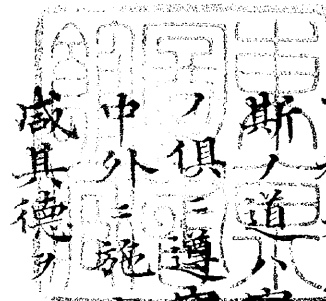 斯ノ道ハ
ノ俱ニ遵
中外ニ施
咸其德ヲ